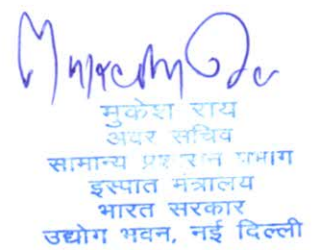 मुकेश राय
अवर सचिव
सामान्य प्रशासन प्रभाग
इस्पात मंत्रालय
भारत सरकार
उद्योग भवन, नई दिल्ली